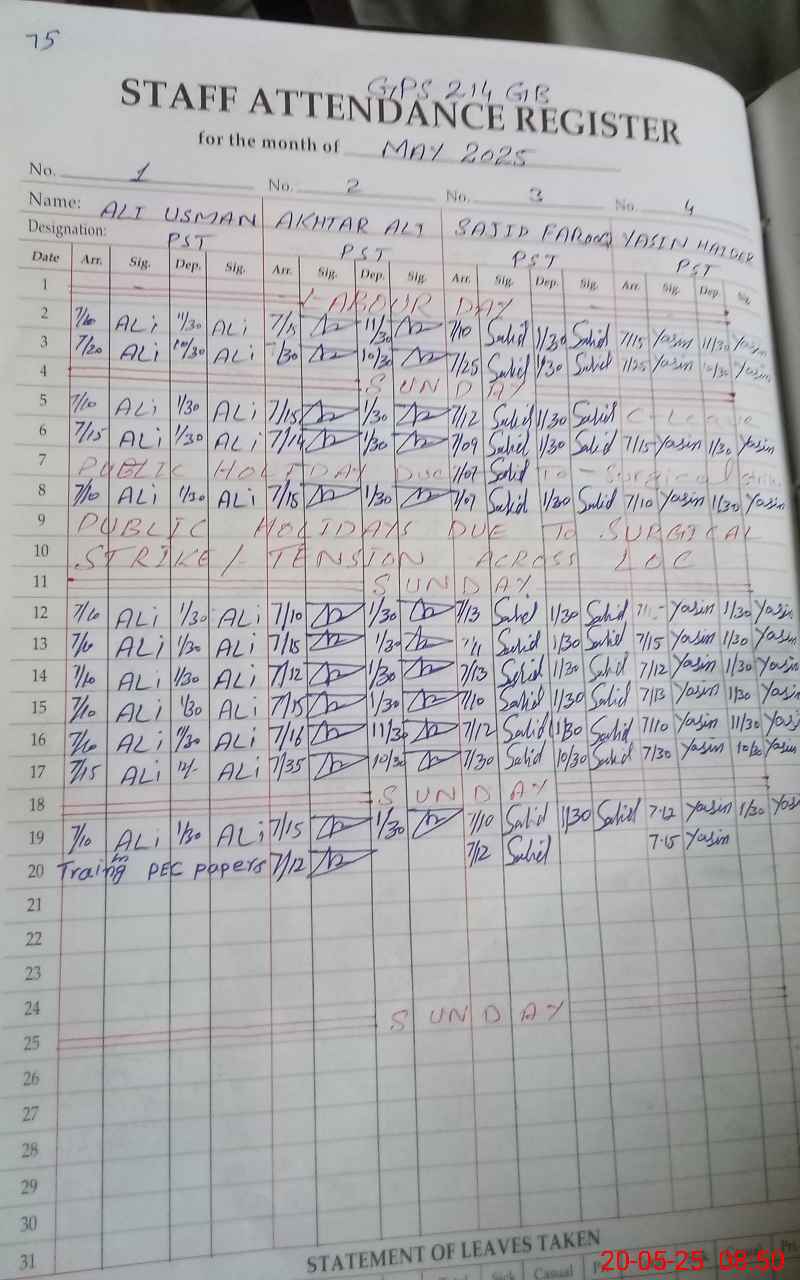 75
GPS 214 GB
STAFF ATTENDANCE REGISTER
for the month of MAY 2025
No. 1 No. 2 No. 3 No. 4
Name: ALI USMAN AKHTAR ALI SAJID FAROOQ YASIN HAIDER
Designation: PST PST PST PST
Date Arr. Sig. Dep. Sig. Arr. Sig. Dep. Sig. Arr. Sig. Dep. Sig. Arr. Sig. Dep. Sig.
1 LABOUR DAY
2 7/10 ALi 11/30 ALi 7/15 11/30 7/10 Sajid 1/30 Sajid 7/15 Yasin 11/30 Yasin
3 7/20 ALi 10/30 ALi 10/30 7/25 Sajid Sajid 7/25 Yasin 10/30 Yasin
4 SUNDAY
5 7/10 ALi 1/30 ALi 7/15 1/30 7/12 Sajid 1/30 Sajid C-Leave
6 7/15 ALi 1/30 ALi 7/14 1/30 7/09 Sajid 1/30 Sajid 7/15 Yasin 1/30 Yasin
7 PUBLIC HOLIDAY Due 7/07 Sajid To - Surgical
8 7/10 ALi 1/30 ALi 7/15 1/30 7/07 Sajid 1/30 Sajid 7/10 Yasin 1/30 Yasin
9 PUBLIC HOLIDAYS DUE TO SURGICAL
10 STRIKE/- TENSION ACROSS LOC
11 SUNDAY
12 7/10 ALi 1/30 ALi 7/10 1/30 7/13 Sajid 1/30 Sajid Yasin 1/30 Yasin
13 7/10 ALi 1/30 ALi 7/15 1/30 Sajid 1/30 Sajid 7/15 Yasin 1/30 Yasin
14 7/10 ALi 1/30 ALi 7/12 1/30 7/13 Sajid 1/30 Sajid 7/12 Yasin 1/30 Yasin
15 7/10 ALi 1/30 ALi 7/15 1/30 7/10 Sajid 1/30 Sajid 7/13 Yasin 1/30 Yasin
16 7/10 ALi 11/30 ALi 7/16 11/30 7/12 Sajid 11/30 Sajid 7/10 Yasin 11/30 Yasin
17 7/15 ALi ALi 7/35 10/30 7/30 Sajid 10/30 Sajid 7/30 Yasin 10/30 Yasin
18 SUNDAY
19 7/10 ALi 1/30 ALi 7/15 1/30 7/10 Sajid 1/30 Sajid 7-12 Yasin 1/30 Yas
20 Traing in PEC papers 7/12 7/12 Sajid 7-15 Yasin
21
22
23
24
25 SUNDAY
26
27
28
29
30
31
STATEMENT OF LEAVES TAKEN
Sick Casual
20-05-25 08:50